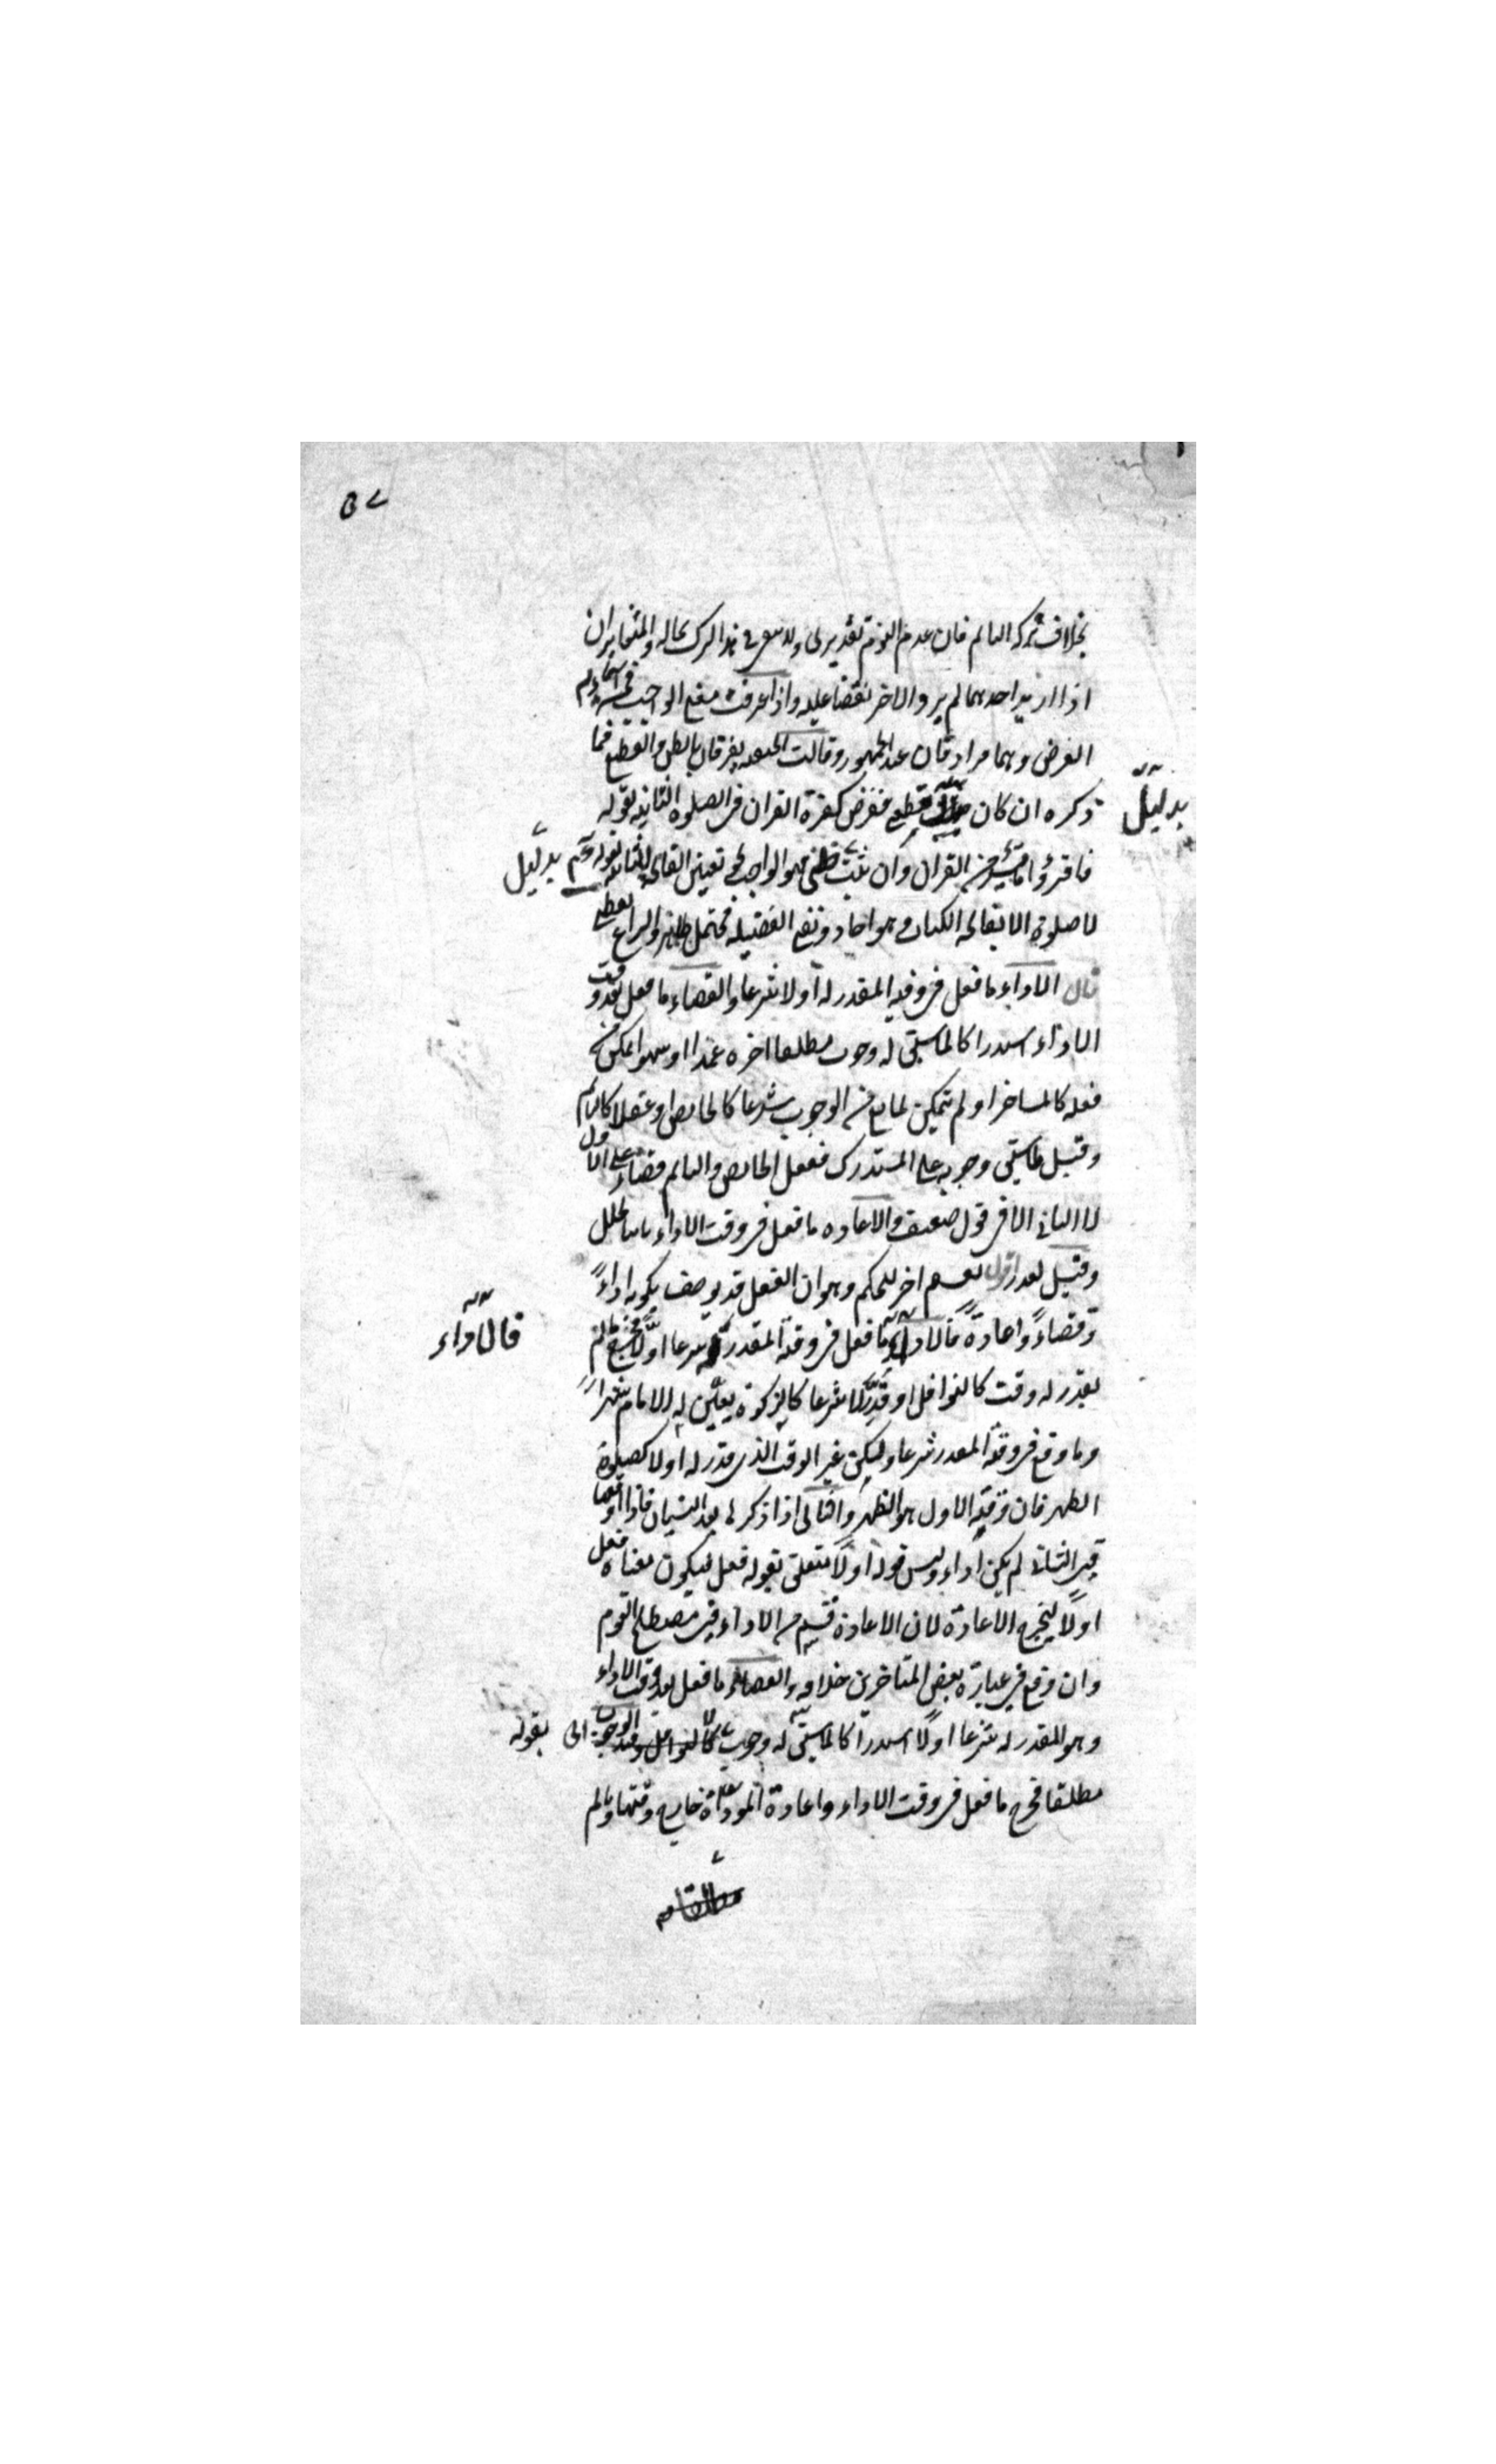 ٥٧
بخلاف تركه النائم فان عدم النوم تقديري ولا في هذا الترك بحاله والمتخايران
اذا اريد احدهما لم يرد الاخر نقضا عليه واذا عرفت معنى الواجب فمن اسمائه
الفرض وهما مرادفان عند الجمهور وقالت الحنفية يفترقان بالظن والقطع فما
ذكره ان كان قطعي ففرض كقراءة القران في الصلوة الثابتة بقوله
بدليل
فاقرؤا ما تيسر من القران وان ثبت بظني فهو الواجب تعيين الفاتحة الثابت بقوله عم
بدليل
لا صلوة الا بفاتحة الكتاب وهو احاد ونفي الفضيلة محتمل ظاهر والنزاع لفظي
قال الاداء ما فعل في وقته المقدر له اولا شرعا والقضاء ما فعل بعد وقت
الاداء استدراكا لما سبق له وجوب مطلقا اخره عمدا او سهوا تمكن من
فعله كالمسافر او لم يتمكن لمانع من الوجوب شرعا كالحائض او عقلا كالنائم
وقيل لما سبق وجوبه على المستدرك ففعل الحائض والنائم قضاء على الاول
لا الثاني الا في قول ضعيف والاعادة ما فعل في وقت الاداء ثانيا لخلل
وقيل لعذر اقول تقسيم اخر للحكم وهو ان الفعل قد يوصف بكونه اداءً
وقضاءً واعادةً ما فعل في وقته المقدر له شرعا اولا فخرج ما لم
فالاداء
يقدر له وقت كالنوافل او قدر لا شرعا كالزكوة يعين له الامام شهرا
وما وقع في وقته المقدر شرعا ولكن غير الوقت الذي قدر له اولا كصلوة
الظهر فان وقته الاول هو الظهر والثاني اذا ذكرها بعد النسيان فاذا اوقعها
في الثاني لم يكن اداء وليس قوله اولا متعلق بقوله فعل ليكون معناه فعل
اولا ليخرج الاعادة لان الاعادة قسم من الاداء في مصطلح القوم
وان وقع في عبارة بعض المتاخرين خلافه والقضاء ما فعل بعد وقت الاداء
وهو المقدر له شرعا اولا استدراكا لما سبق له وجوب كالنوافل وقيد الوجوب بقوله
مطلقا فخرج ما فعل في وقت الاداء واعادة المؤداة خارج وقتها وما لم